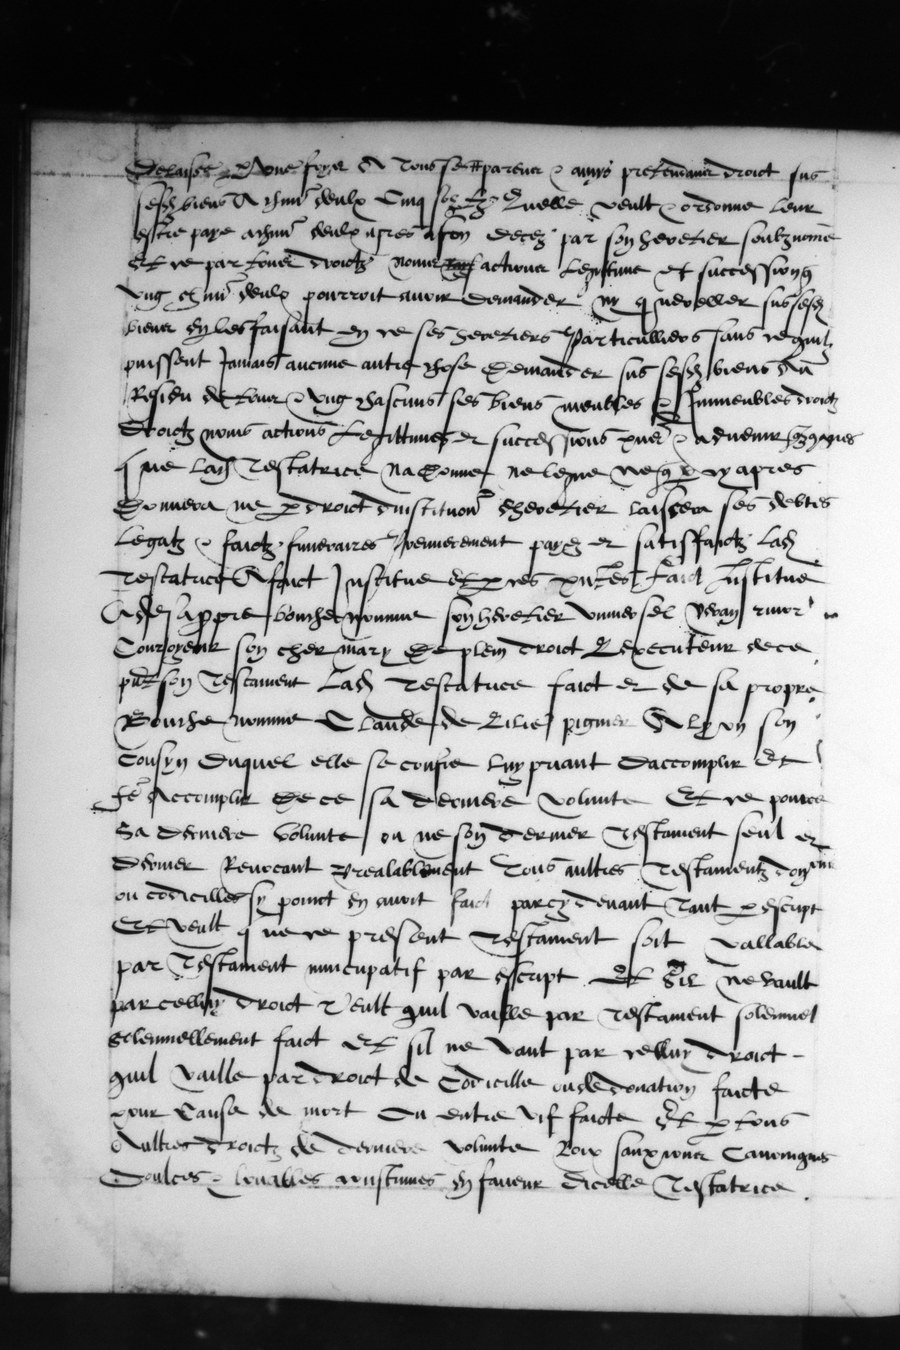 Delaisse une foys A Tous se parens & amys pretendans droict sus
sesd biens A chun deulx Cinq solz tz Quelle veult & ordonne leur
estre paye achun deulx apres a son deces par son heretier soubznome
Et ce par tous droictz noms actions legitime et successions q
ung chun deulx pourroit avoir demander ny quereller sus sesd
biens en les faisant en ce ses heretiers Particulliers sans ce quilz
puissent Jamais aucune autre chose Demander sus sesd biens Au
Residu de tous & ung chascuns ses biens meubles & Immeubles droictz
Droictz noms actions Legittimes et successions pns & advenir
que lad Testatrice na donne ne legue ne cy apres
Donnera ne p droict dinstitution dheretier laissera ses debtes
Legatz & faictz funeraires Premierement payez et satisfaictz lad
Testatrice A faict Institue et p ces pntes faict Institue
& de sa ppre bouche nomme son heretier universel
Couroyeur son cher mary De plein droict Lexecuteur de ce
pnt son Testament Lad Testatrice faict et de sa propre
Bouche nomme Claude de Lilie pignier A Lyon son
Cousyn Duquel elle se confie luy priant Daccomplir Et
fe Accomplir De ce sa derniere volunte Et ce pour
Sa derniere volunte ou ne son dernier Testament seul et
Dernier Revocant Prealablement Tous aultres Testamentz
ou codicilles sy poinct en avoit faict par cy devant Tant p escript
Et veult que ce present Testament soit vallable
par Testament nuncupatif par escript Et Sil ne vault
par celluy droict Veult quil vaille par Testament solennel
Solennellement faict Et sil ne vaut par celluy droict -
quil vaille par droict de Codicille ou de donation faicte
pour Cause de mort Ou entre vif faicte Et p tous
Aultres droictz de derniere volunte Loix Canoniques
Doulces & louables coustumes en faveur dicelle Testatrice